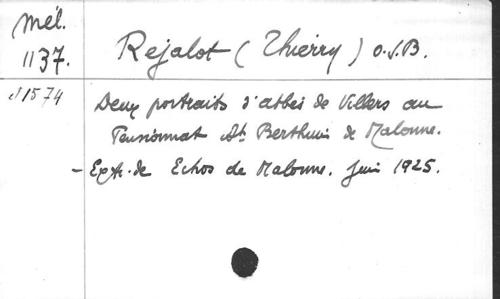 Mél.
1137.
Rejalot (Thierry) O.S.B.
1574
Deux portraits d'abbés de Villers au
Pensionnat St Berthuin de Malonne.
- Extr. de Echos de Malonne. Juin 1925.